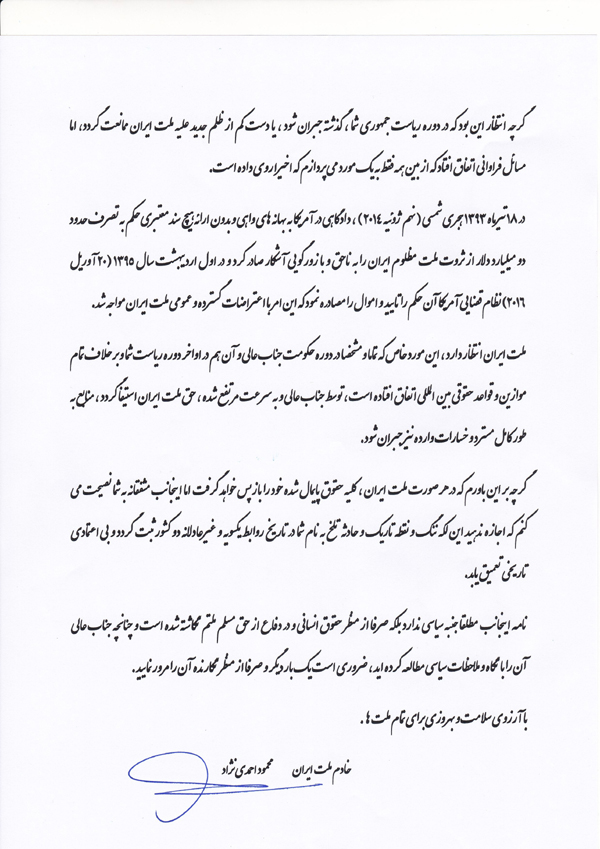 گرچه انتظار این بود که در دوره ریاست جمهوری شما، گذشته جبران شود، یا دست کم از ظلم جدید علیه ملت ایران ممانعت گردد، اما
مسائل فراوانی اتفاق افتاد که از بین همه فقط به یک مورد می پردازم که اخیرا روی داده است.
در ۱۸ تیرماه ۱۳۹۳ هجری شمسی (نهم ژوئیه ۲۰۱۴)، دادگاهی در آمریکا به بهانه های واهی و بدون ارائه هیچ سند معتبری حکم به تصرف حدود
دو میلیارد دلار از ثروت ملت مظلوم ایران را به ناحق و با زورگویی آشکار صادر کرد و در اول اردیبهشت سال ۱۳۹۵ (۲۰ آوریل
۲۰۱۶) نظام قضایی آمریکا آن حکم را تایید و اموال را مصادره نمود که این امر با اعتراضات گسترده و عمومی ملت ایران مواجه شد.
ملت ایران انتظار دارد، این مورد خاص که تماما و مشخصا در دوره حکومت جناب عالی و آن هم در اواخر دوره ریاست شما و بر خلاف تمام
موازین و قواعد حقوقی بین المللی اتفاق افتاده است، توسط جناب عالی و به سرعت مرتفع شده، حق ملت ایران استیفا گردد، منابع به
طور کامل مسترد و خسارات وارده نیز جبران شود.
گرچه بر این باورم که در هر صورت ملت ایران، کلیه حقوق پایمال شده خود را باز پس خواهد گرفت اما اینجانب مشفقانه به شما نصیحت می
کنم که اجازه ندهید این لکه ننگ و نقطه تاریک و حادثه تلخ به نام شما در تاریخ روابط یکسویه و غیرعادلانه دو کشور ثبت گردد و بی اعتمادی
تاریخی تعمیق یابد.
نامه اینجانب مطلقا جنبه سیاسی ندارد بلکه صرفا از منظر حقوق انسانی و در دفاع از حق مسلم ملتم نگاشته شده است و چنانچه جناب عالی
آن را با نگاه و ملاحظات سیاسی مطالعه کرده اید، ضروری است یک بار دیگر و صرفا از منظر نگارنده آن را مرور نمایید.
با آرزوی سلامت و بهروزی برای تمام ملت ها.
خادم ملت ایران محمود احمدی نژاد